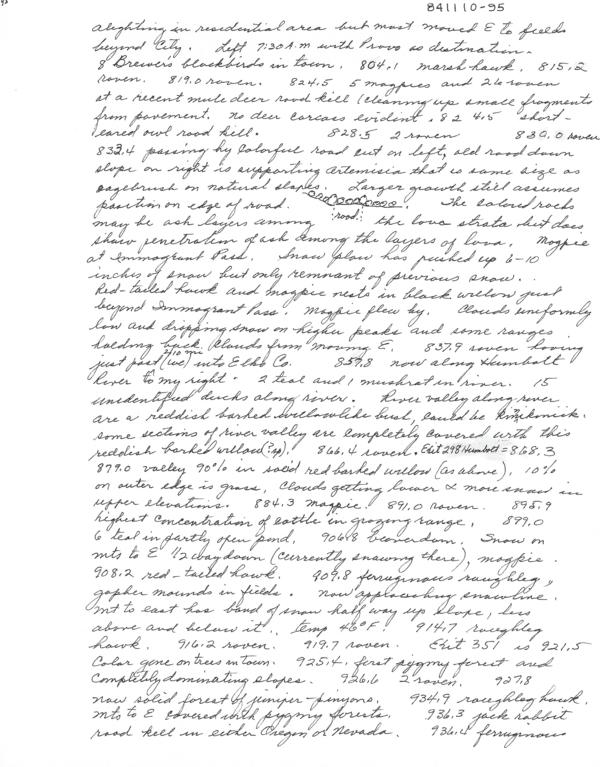 841110-95
alighting in residential area but most moved E to fields
beyond City. Left 7:30 A.m with Provo as destination.
8 Brewers blackbirds in town. 804.1 marsh hawk. 815.2
raven. 819.0 raven. 824.5 5 magpies and 26 raven
at a recent mule deer road kill (cleaning up small fragments
from pavement. no deer carcass evident. 824.5 short-
eared owl road kill. 828.5 2 raven 830.0 raven
833.4 passing by colorful road cut on left, old road down
slope on right is supporting artemisia that is same size as
sagebrush on natural slopes. Larger growth still assumes
position on edge of road. The colored rocks
may be ash layers among road: the lava strata but does
show penetration of ash among the layers of lava. Magpie
at Immagrant Pass. Snow plow has pushed up 6-10
inches of snow but only remnant of previous snow.
Red-tailed hawk and magpie nests in black willow just
beyond Immagrant Pass. Magpie flew by. Clouds uniformly
low and dropping snow on higher peaks and some ranges
holding back clouds from moving E. 857.9 raven having
just past 2/10 mi into Elko Co. 859.8 now along Humbolt
River to my right. 2 teal and 1 muskrat in river. 15
unidentified ducks along river. River valley along river
are a reddish barked willowlike bush, could be
some sections of river valley are completely covered with this
reddish barked willow (?sp). 866.4 raven. Exit 298 Humbolt = 868.3
879.0 valley 90% in solid red barked willow (as above), 10%
on outer edge is grass, Clouds getting lower & more snow in
upper elevations. 884.3 magpie. 891.0 raven. 895.9
highest concentration of cattle in grazing range. 899.0
6 teal in partly open pond. 906.8 beaverdam. Snow on
mts to E 1/2 way down (currently snowing there), magpie.
908.2 red-tailed hawk. 909.8 ferruginous roughleg,
gopher mounds in fields. Now approaching snowline.
mt to east has band of snow half way up slope, less
above and below it., temp 46°F. 914.7 roughleg
hawk. 916.2 raven. 919.7 raven. Exit 351 is 921.5
Color gone on trees in town. 925.4, first pygmy forest and
completely dominating slopes. 926.6 2 raven. 927.8
now solid forest of juniper-pinyons. 934.9 roughleg hawk.
mts to E covered with pygmy forests. 936.3 jack rabbit
road kill in either Oregon or Nevada. 936.4 ferruginous